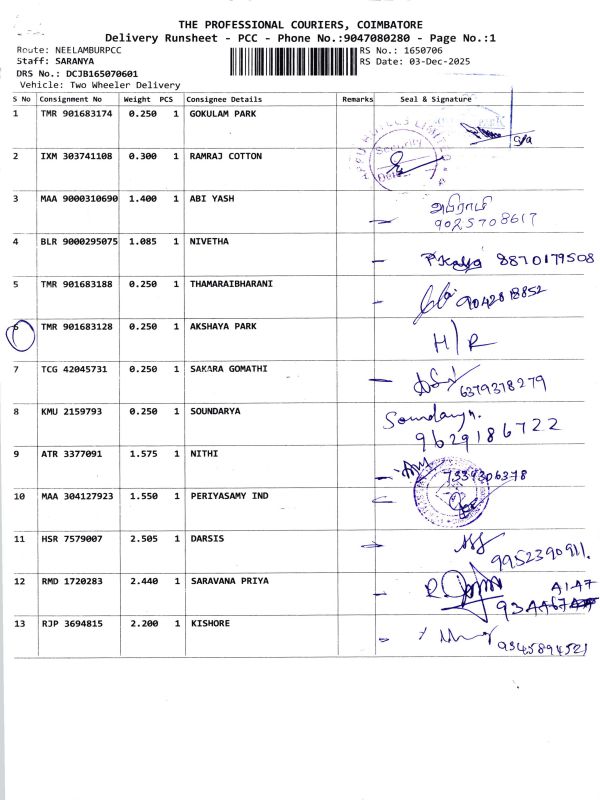 THE PROFESSIONAL COURIERS, COIMBATORE
Delivery Runsheet - PCC - Phone No.:9047080280 - Page No.:1
Route: NEELAMBURPCC
RS No.: 1650706
Staff: SARANYA
RS Date: 03-Dec-2025
DRS No.: DCJB165070601
Vehicle: Two Wheeler Delivery
S No Consignment No Weight PCS Consignee Details Remarks Seal & Signature
1 TMR 901683174 0.250 1 GOKULAM PARK
2 IXM 303741108 0.300 1 RAMRAJ COTTON
Security
3 MAA 9000310690 1.400 1 ABI YASH அபிராமி
9025708617
4 BLR 9000295075 1.085 1 NIVETHA 8870179508
5 TMR 901683188 0.250 1 THAMARAIBHARANI 9042818852
6 TMR 901683128 0.250 1 AKSHAYA PARK H/R
7 TCG 42045731 0.250 1 SAKARA GOMATHI 6379378279
8 KMU 2159793 0.250 1 SOUNDARYA Soundarya.
9629186722
9 ATR 3377091 1.575 1 NITHI 7339306378
10 MAA 304127923 1.550 1 PERIYASAMY IND
11 HSR 7579007 2.505 1 DARSIS 9952390911.
12 RMD 1720283 2.440 1 SARAVANA PRIYA
13 RJP 3694815 2.200 1 KISHORE 9345894521